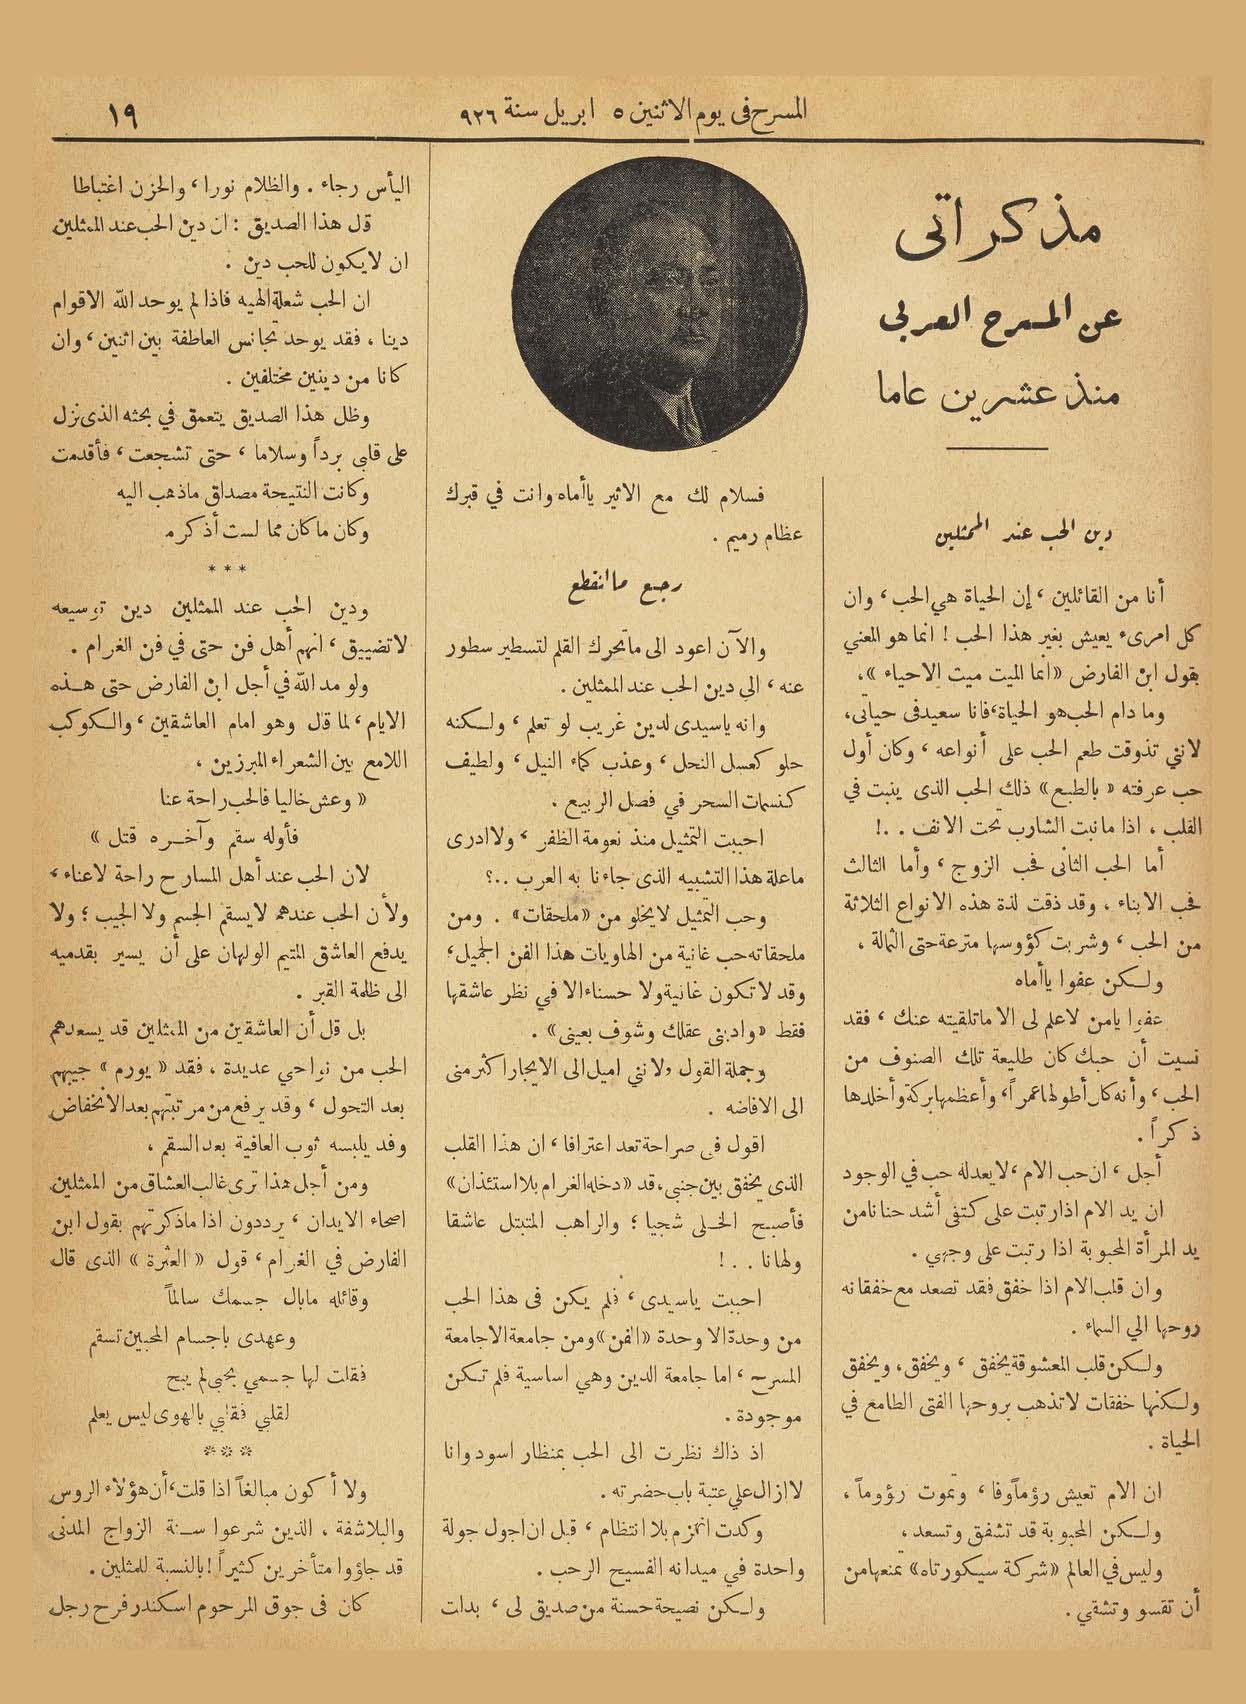 المسرح فى يوم الاثنين ٥ ابريل سنة ٩٢٦
١٩
مذكراتى
عن المسرح العربى
منذ عشرين عاما
دين الحب عند الممثلين
أنا من القائلين ، إن الحياة هي الحب ، وان
كل امرىء يعيش بغير هذا الحب ! انما هو المعني
بقول ابن الفارض «انما الميت ميت الاحياء » ،
وما دام الحب هو الحياة ، فانا سعيد فى حياتى ،
لانني تذوقت طعم الحب على أنواعه ، وكان أول
حب عرفته « بالطبع » ذلك الحب الذى ينبت في
القلب ، اذا ما نبت الشارب تحت الانف . . !
أما الحب الثانى فحب الزوج ، وأما الثالث
فحب الابناء ، وقد ذقت لذة هذه الانواع الثلاثة
من الحب ، وشربت كؤوسها مترعة حتى الثمالة ،
ولكن عفوا يا أماه
عفوا يامن لاعلم لى الا ماتلقيته عنك ، فقد
نسيت أن حبك كان طليعة تلك الصنوف من
الحب ، وأنه كان أطولها عمراً ، وأعظمها بركة وأخلدها
ذكراً .
أجل ، ان حب الام ، لا يعدله حب في الوجود
ان يد الام اذا ربتت على كتفى أشد حنانا من
يد المرأة المحبوبة اذا ربتت على وجهي .
وان قلب الام اذا خفق فقد تصعد مع خفقانه
روحها الي السماء .
ولكن قلب المعشوقة يخفق ، ويخفق ، ويخفق
ولكنها خفقات لا تذهب بروحها الفتى الطامع في
الحياة .
ان الام تعيش رؤماً وفا ، وتموت رؤوماً ،
ولكن المحبوبة قد تشفق وتسعد ،
وليس في العالم «شركة سيكورتاه» تمنعها من
أن تقسو وتشقي .
فسلام لك مع الاثير يا أماه وانت في قبرك
عظام رميم .
رجع ما انقطع
والآن اعود الى ما تحرك القلم لتسطير سطور
عنه ، الي دين الحب عند الممثلين .
وانه ياسيدى لدين غريب لو تعلم ، ولكنه
حلو كعسل النحل ، وعذب كماء النيل ، ولطيف
كنسمات السحر في فصل الربيع .
احببت التمثيل منذ نعومة الظفر ، ولا ادرى
ماعلة هذا التشبيه الذى جاءنا به العرب ..؟
وحب التمثيل لايخلو من «ملحقات» . ومن
ملحقاته حب غانية من الهاويات هذا الفن الجميل ،
وقد لا تكون غانية ولا حسناء الا في نظر عاشقها
فقط «وادينى عقلك وشوف بعينى» .
وجملة القول ولانني اميل الى الايجاز اكثر منى
الى الافاضه .
اقول فى صراحة تعد اعترافا ، ان هذا القلب
الذى يخفق بين جنبى ، قد «دخله الغرام بلا استئذان»
فأصبح الخلى شجيا ؛ والراهب المتبتل عاشقا
ولهانا . . !
احببت ياسيدى ، فلم يكن فى هذا الحب
من وحدة الا وحدة «الفن» ومن جامعة الا جامعة
المسرح ، اما جامعة الدين وهي اساسية فلم تكن
موجودة .
اذ ذاك نظرت الى الحب بمنظار اسود وانا
لا ازال علي عتبة باب حضرته .
وكدت انهزم بلا انتظام ، قبل ان اجول جولة
واحدة في ميدانه الفسيح الرحب .
ولكن نصيحة حسنة من صديق لى ، بدلت
اليأس رجاء . والظلام نورا ، والحزن اغتباطا
قل هذا الصديق : ان دين الحب عند الممثلين
ان لا يكون للحب دين .
ان الحب شعلة الهيه فاذا لم يوحد الله الاقوام
دينا ، فقد يوحد تجانس العاطفة بين اثنين ، وان
كانا من دينين مختلفين .
وظل هذا الصديق يتعمق في بحثه الذى نزل
على قلبي برداً وسلاما ، حتى تشجعت ، فأقدمت
وكانت النتيجة مصداق ماذهب اليه
وكان ما كان مما لست أذكره
* * *
ودين الحب عند الممثلين دين توسيعه
لا تضييق ، انهم أهل فن حتى في فن الغرام .
ولو مد الله في أجل ابن الفارض حتى هذه
الايام ، لما قال وهو امام العاشقين ، والكوكب
اللامع بين الشعراء المبرزين ،
« وعش خاليا فالحب راحة عنا
فأوله سقم وآخره قتل »
لان الحب عند أهل المسارح راحة لاعناء ،
ولأن الحب عندهم لا يسقم الجسم ولا الجيب ؛ ولا
يدفع العاشق المتيم الولهان على أن يسير بقدميه
الى ظلمة القبر .
بل قل أن العاشقين من الممثلين قد يسعدهم
الحب من نواحي عديدة ، فقد « يورم » جيبهم
بعد التحول ، وقد يرفع من مرتبتهم بعد الانخفاض
وقد يلبسه ثوب العافية بعد السقم ،
ومن أجل هذا ترى غالب العشاق من الممثلين
اصحاء الابدان ، يرددون اذا ماذكرتهم بقول ابن
الفارض في الغرام ، قول « العثرة » الذى قال
وقائله مابال جسمك سالماً
وعهدى باجسام المحبين تسقم
فقلت لها جسمي بحبى لم يبح
لقلبي فقلبي بالهوى ليس يعلم
* * *
ولا أكون مبالغاً اذا قلت ، أن هؤلاء الروس
والبلاشفة ، الذين شرعوا سنة الزواج المدنى
قد جاؤوا متأخرين كثيراً ! بالنسبة للمثلين .
كان فى جوق المرحوم اسكندر فرح رجل